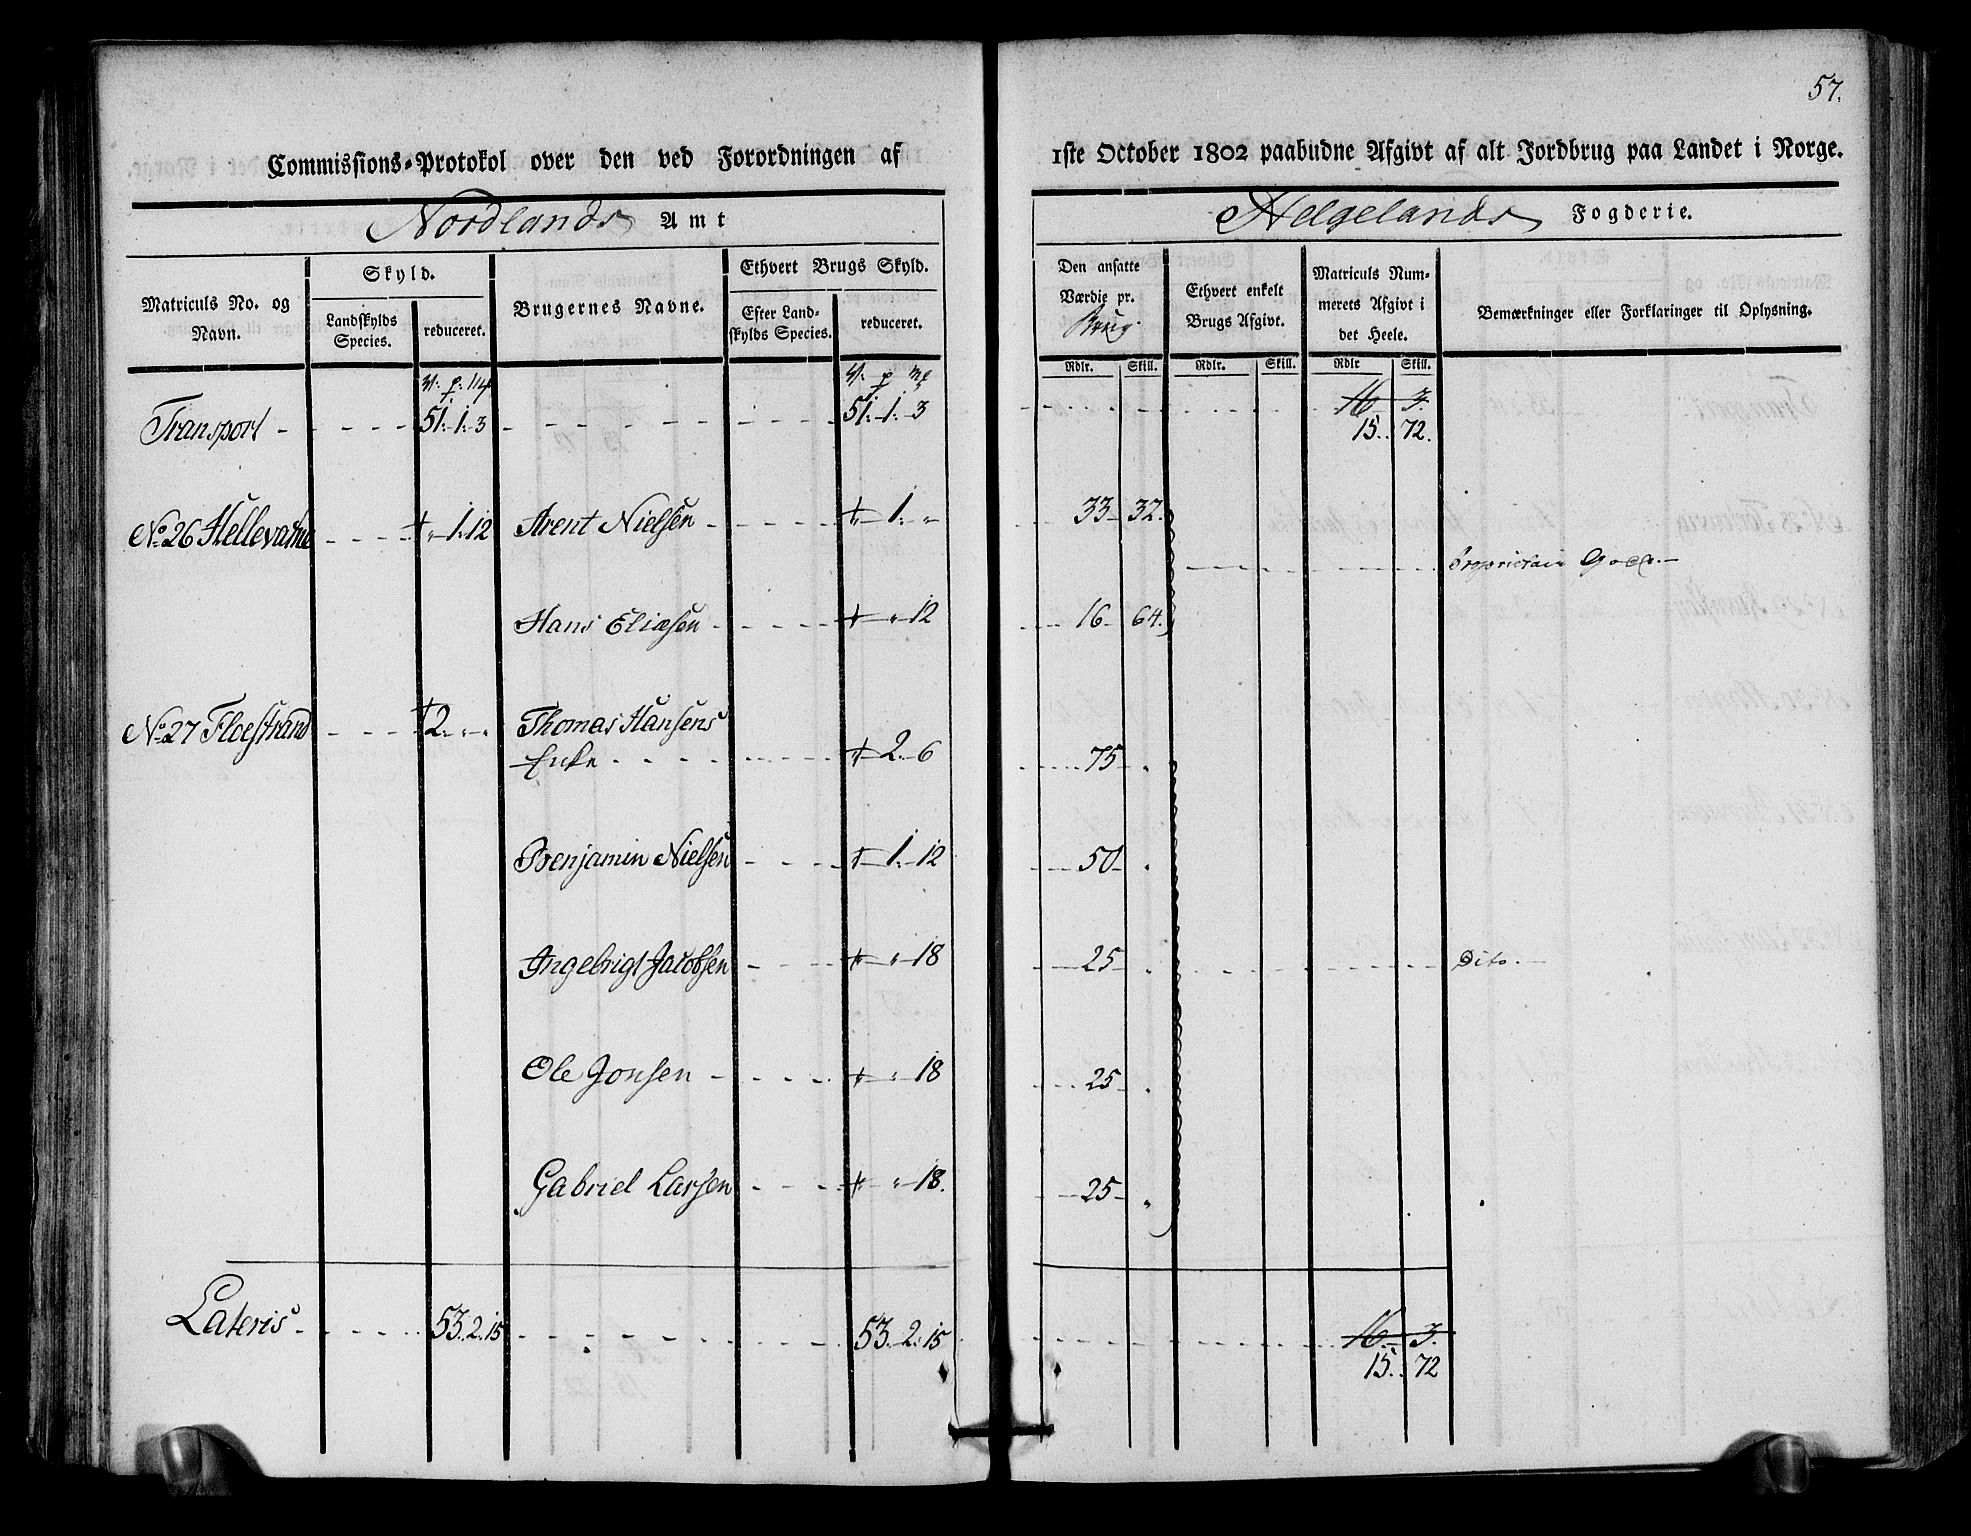 57.
Commissions-Protokol over den ved Forordningen af 1ste October 1802 paabudne Afgivt af alt Jordbrug paa Landet i Norge.
Nordlands Amt
Helgelands Fogderie.
Matriculs No. og Navn.
Skyld.
Landskylds Species.
reduceret.
Brugernes Navne.
Ethvert Brugs Skyld.
Efter Landskylds Species.
reduceret.
Den ansatte Værdie pr. Brug.
Ethvert enkelt Brugs Afgivt.
Matriculs Nummerets Afgivt i det Heele.
Bemærkninger eller Forklaringer til Oplysning.
Rdlr. Skill. Rdlr. Skill. Rdlr Skill.
Transport - - - - 51. 1. 3 - - - - 51. 1. 3 - - - - 16 3.
15. 72.
No. 26 Hellevatne - - - " 1. 12 Arent Nielsen - - - 1. " - - 33 32.
Proprietair Godz.
Hans Eliasen - - - " 12 - - 16 64.
No. 27 Floestrand - - - 2. " " Thomas Hansens
Enke - - - - 2. 6 - - 75 "
Benjamin Nielsen - - - 1. 12 - - 50 "
Ingebrigt Jacobsen - - - " 18 - - 25 " - - - Dito.
Ole Jonsen - - - " 18 - - 25 "
Gabriel Larsen - - - " 18. - - 25 "
Lateris - - - - 53. 2. 15 - - - - 53. 2. 15 - - - - 16 3.
15. 72